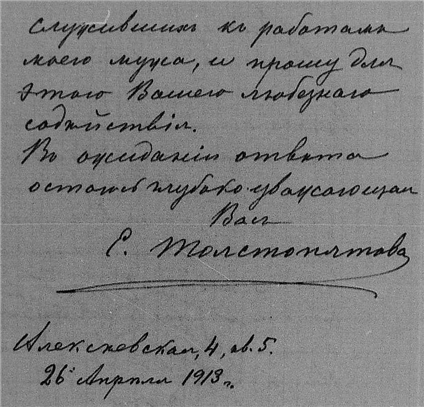 служившихъ къ работамъ
моего мужа, и прошу для
этого Вашего любезнаго
содѣйствія.
Въ ожиданіи отвѣта
остаюсь глубоко уважающая
Васъ
С. Толстопятова
Алексѣевская, 4, кв. 5.
26 Апрѣля 1913 г.